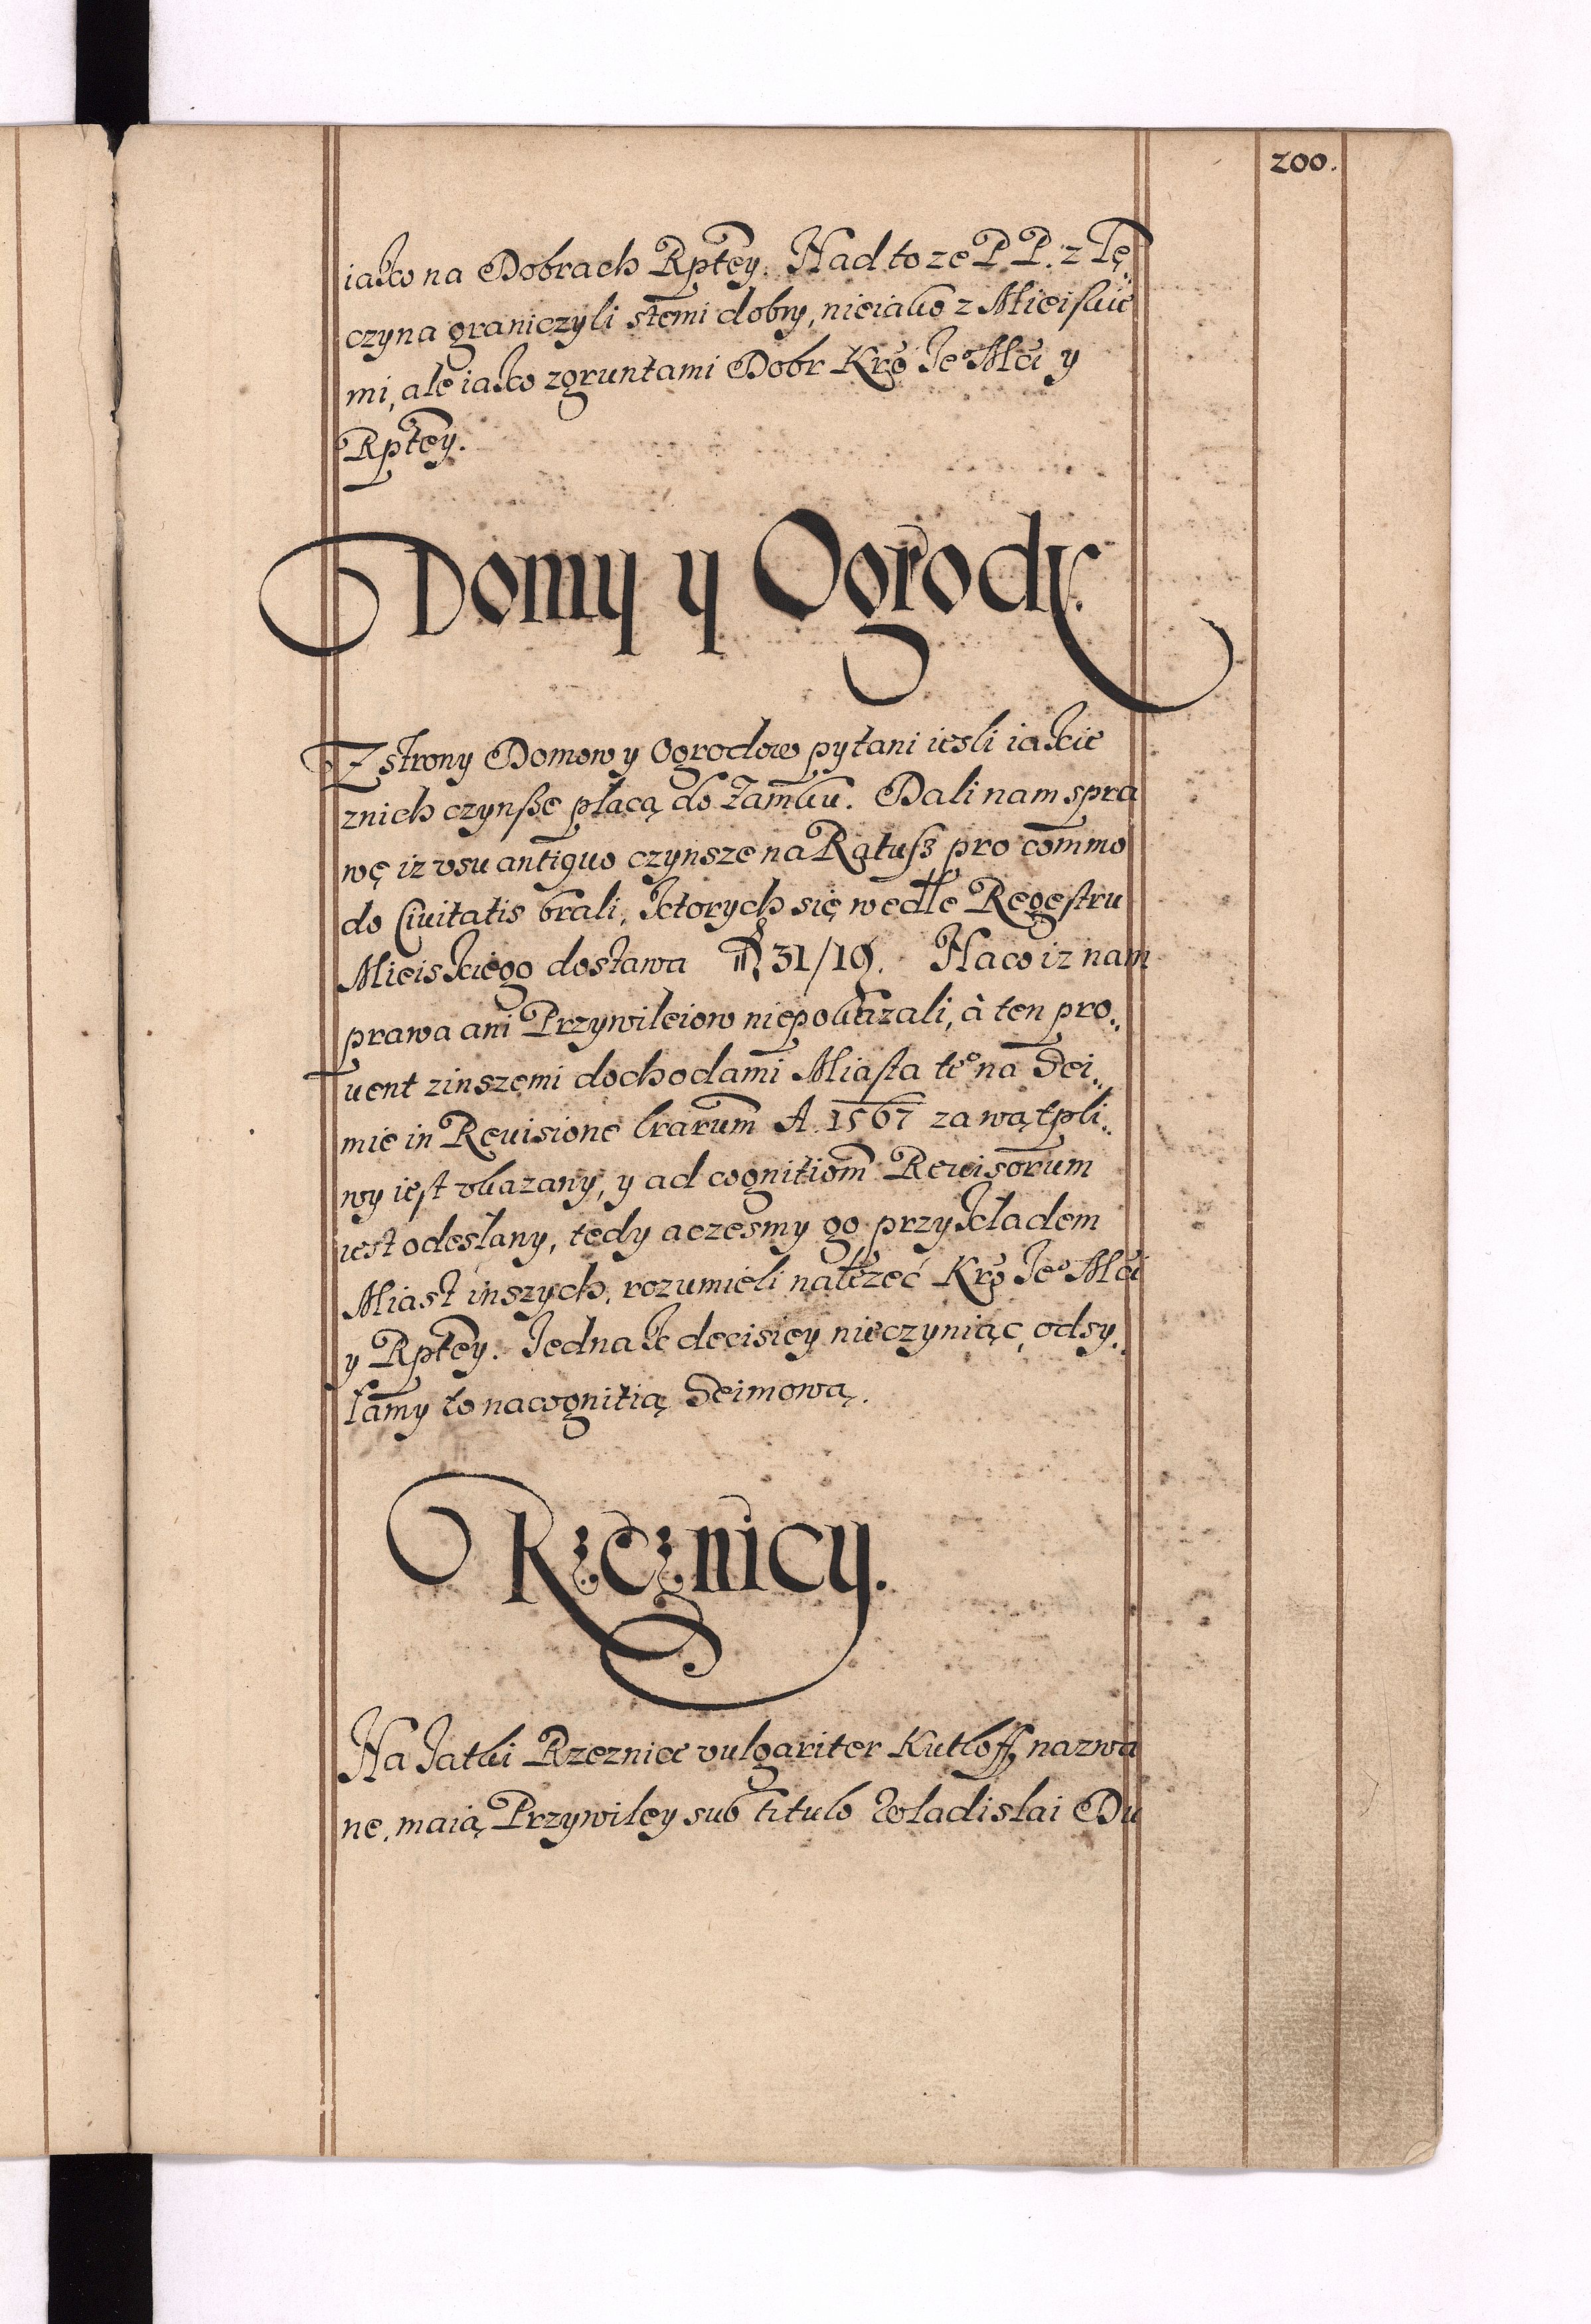 200.
iako na Dobrach Rptey. Nad to ze P P. z Tę„
czyna graniczyli stemi dobry, nieiako z Mieiskie
mi, ale iako zgruntami Dobr Kro Ieo Mci y
Rptey.
Domy y Ogrody.
Z strony Domow y Ogrodow pytani iesli iakie
znich czynsze płacą do Zamku. Dali nam spra
wę iz vsu antiquo czynsze na Ratusz pro commo
do Civitatis brali, ktorych się wedle Regestru
Mieiskiego dostawa 31/19. Na co iz nam
prawa ani Przywileiow niepokazali, à ten pro„
uent zinszemi dochodami Miasta teo na Sei„
mie in Reuisione lrarum A. 1567 za wątpli„
wy iest vkazany, y ad cognitiom Reuisorum
iest odesłany, tedy aczesmy go przykładem
Miast inszych, rozumieli należeć Kro Ieo Mci
y Rptey. Iednak decisiey nieczyniąc, odsy„
łamy to nacognitią Seimową.
Rzeznicy.
Na Iatki Rzeznice vulgariter Kutloff nazwa
ne, maią Przywiley sub titulo Wladislai Du